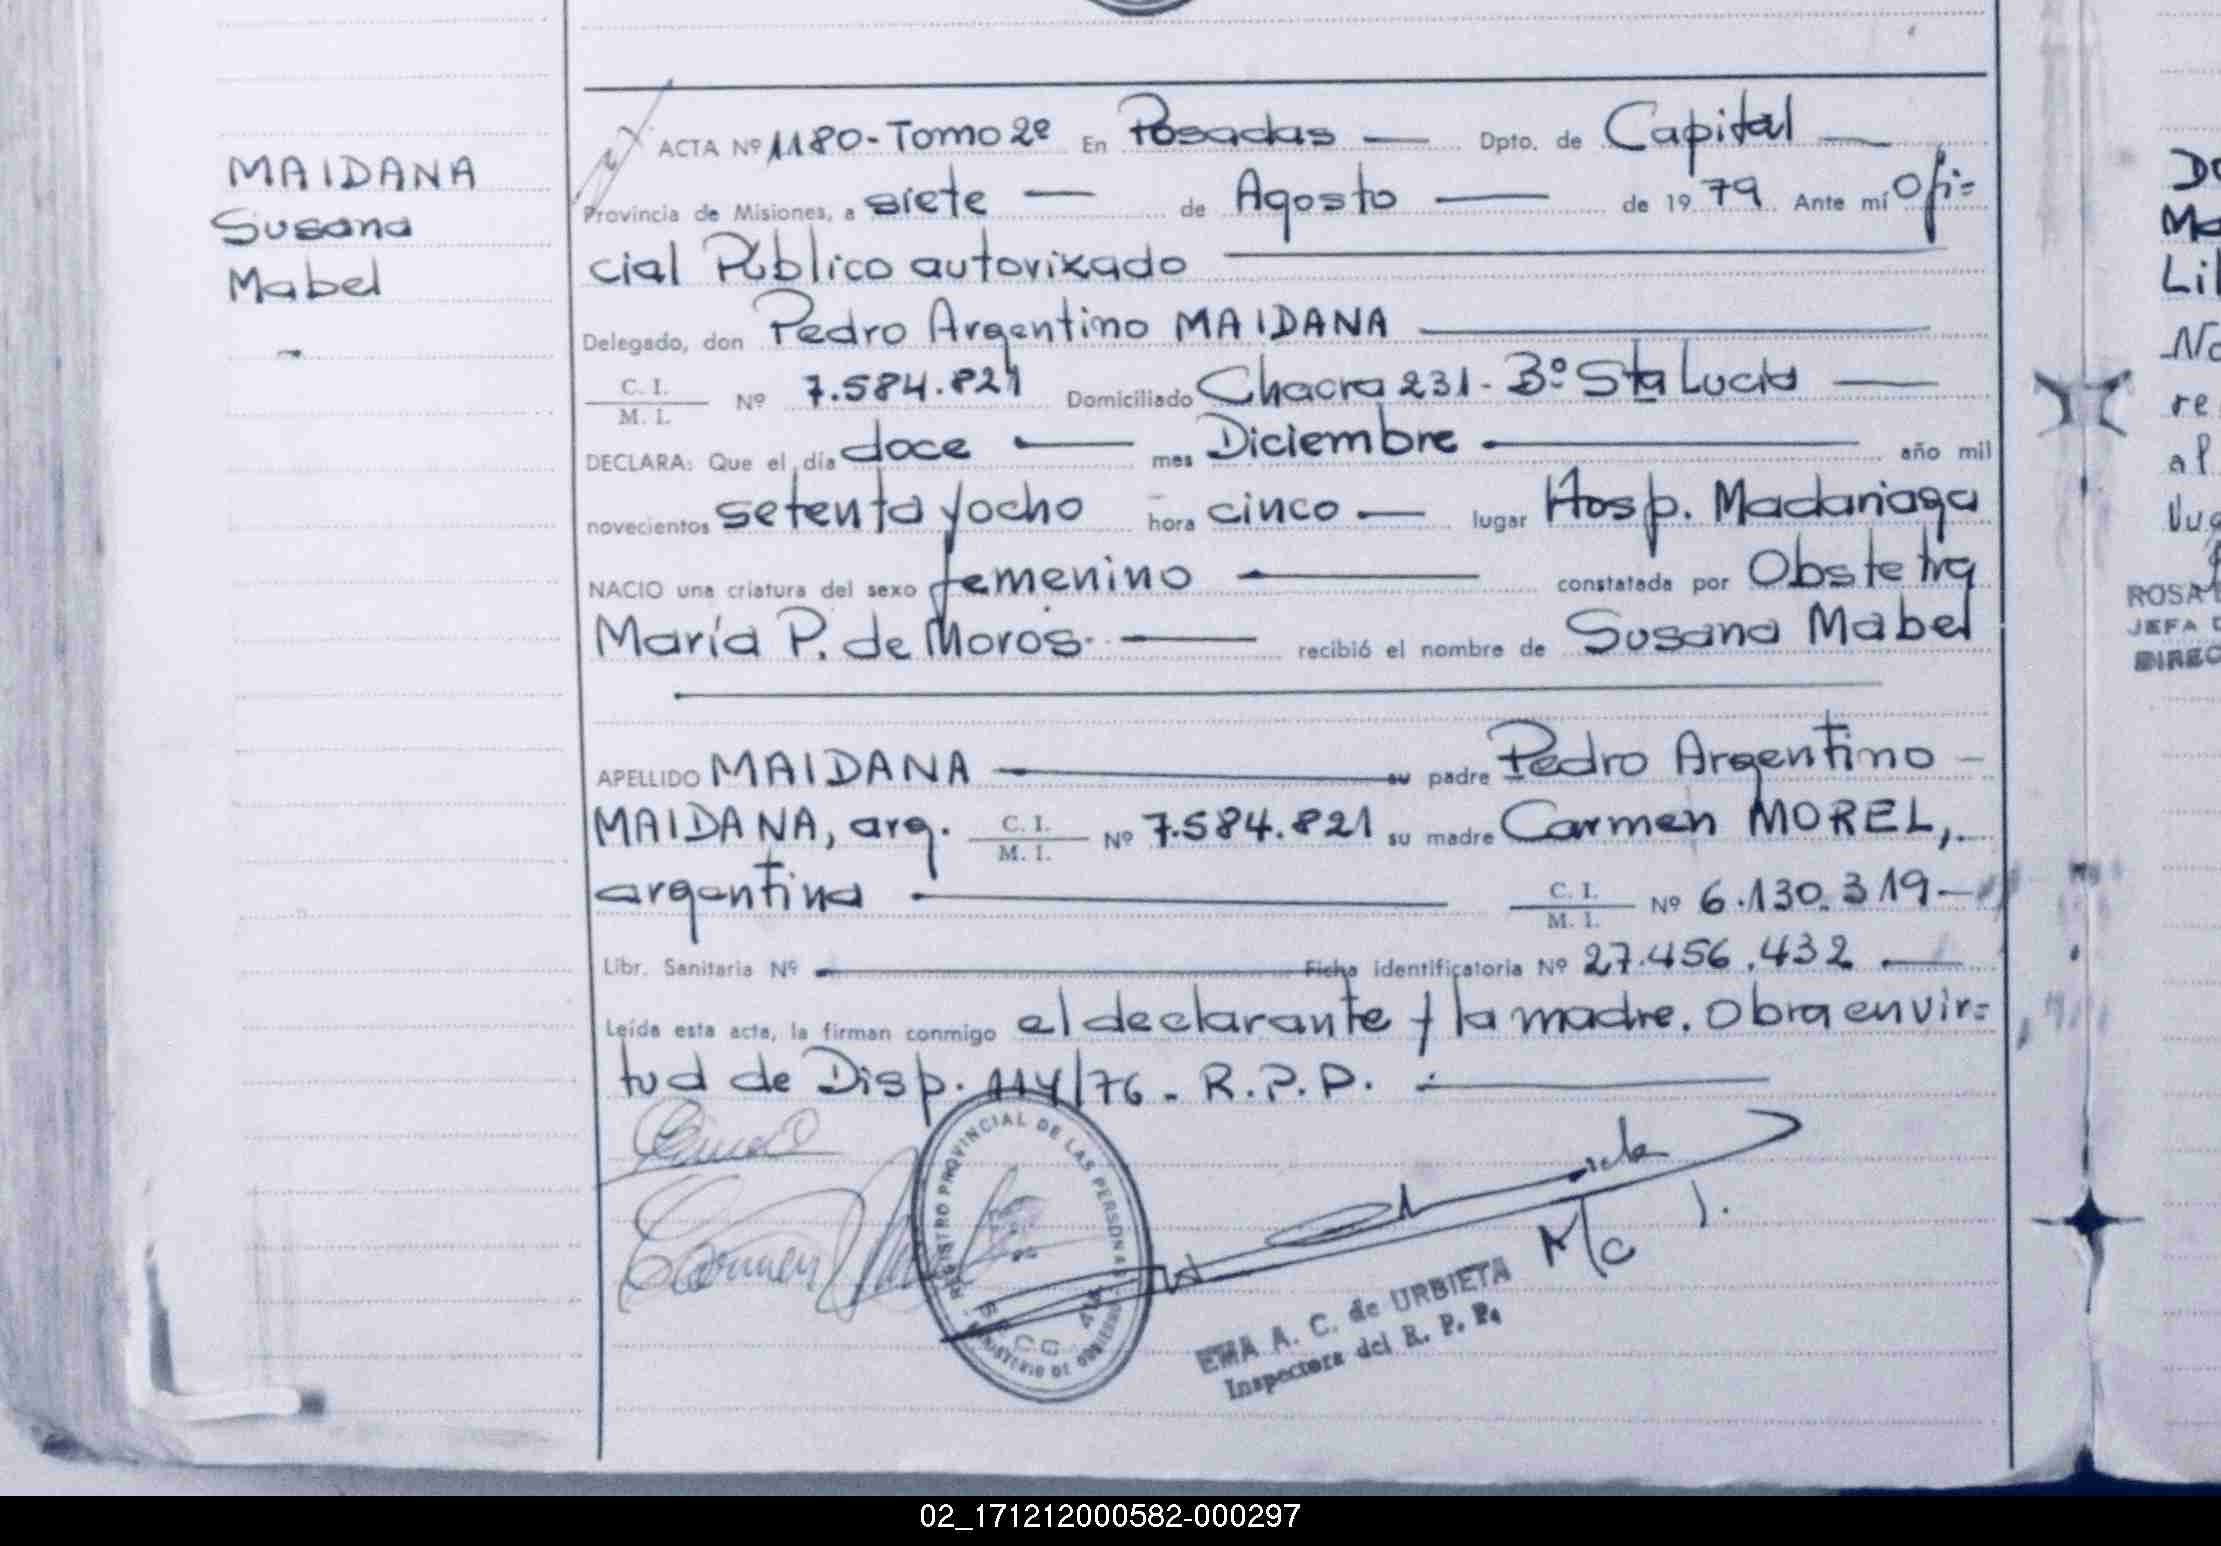 MAIDANA
Susana
Mabel
ACTA Nº 1180-Tomo 2º En Posadas — Dpto. de Capital —
Provincia de Misiones, a siete — de Agosto — de 1979 Ante mí Ofi=
cial Público autorizado
Delegado, don Pedro Argentino MAIDANA
C. I.
M. I. Nº 7.584.821 Domiciliado Chacra 231 - Bº Sta Lucia —
DECLARA: Que el día doce — mes Diciembre — año mil
novecientos setenta y ocho hora cinco — lugar Hosp. Madariaga
NACIO una criatura del sexo femenino — constatada por Obstetra
María P. de Moros. — recibió el nombre de Susana Mabel
APELLIDO MAIDANA — su padre Pedro Argentino —
MAIDANA, arg. C. I. M. I. Nº 7.584.821 su madre Carmen MOREL,.
argentina — C. I. M. I. Nº 6.130.319—
Libr. Sanitaria Nº — Ficha identificatoria Nº 27.456.432 —
Leída esta acta, la firman conmigo el declarante y la madre. Obra en vir=
tud de Disp. 114/76 - R.P.P. —
REGISTRO PROVINCIAL DE LAS PERSONAS
MINISTERIO DE GOBIERNO
Carmen
EMA A. C. de URBIETA
Inspectora del R. P. P.
Lil
ROSA
JEFA
DIREC
02_171212000582-000297